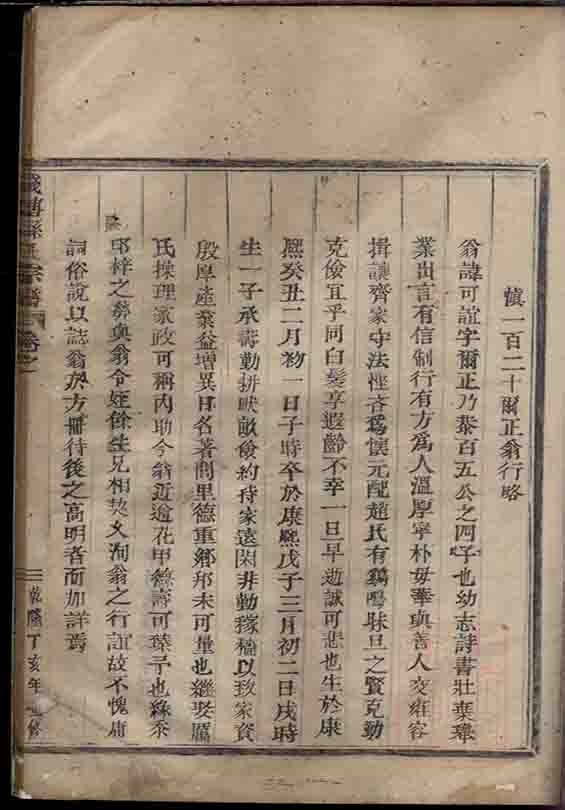 慎一百二十爾正翁行略
翁諱可誼字爾正乃恭百五公之四子也幼志詩書壯葉
業出言有信制行有方為人溫厚寧朴毋華與善人交雍容
揖讓齊家守法性吝為懷元配趙氏有鷄鳴昧旦之賢克勤
克儉宜乎同白髮享遐齡不幸一旦早逝誠可悲也生於康
熙癸丑二月初一日子時卒於康熙戊子三月初二日戌時
生一子承壽勤耕畎畝儉約持家遠閑非勤稼穡以致家資
殷厚產業益增異日名著閭里德重鄉邦未可量也繼娶厲
氏操理家政可稱內助今翁近逾花甲德壽可葉予也緣忝
邱梓之旁與翁令姪餘生兄相契又洵翁之行誼故不愧庸
詞俗說以誌翁於方冊待後之高明者而加詳焉
孫氏宗譜 卷之一
乾隆丁亥年 修